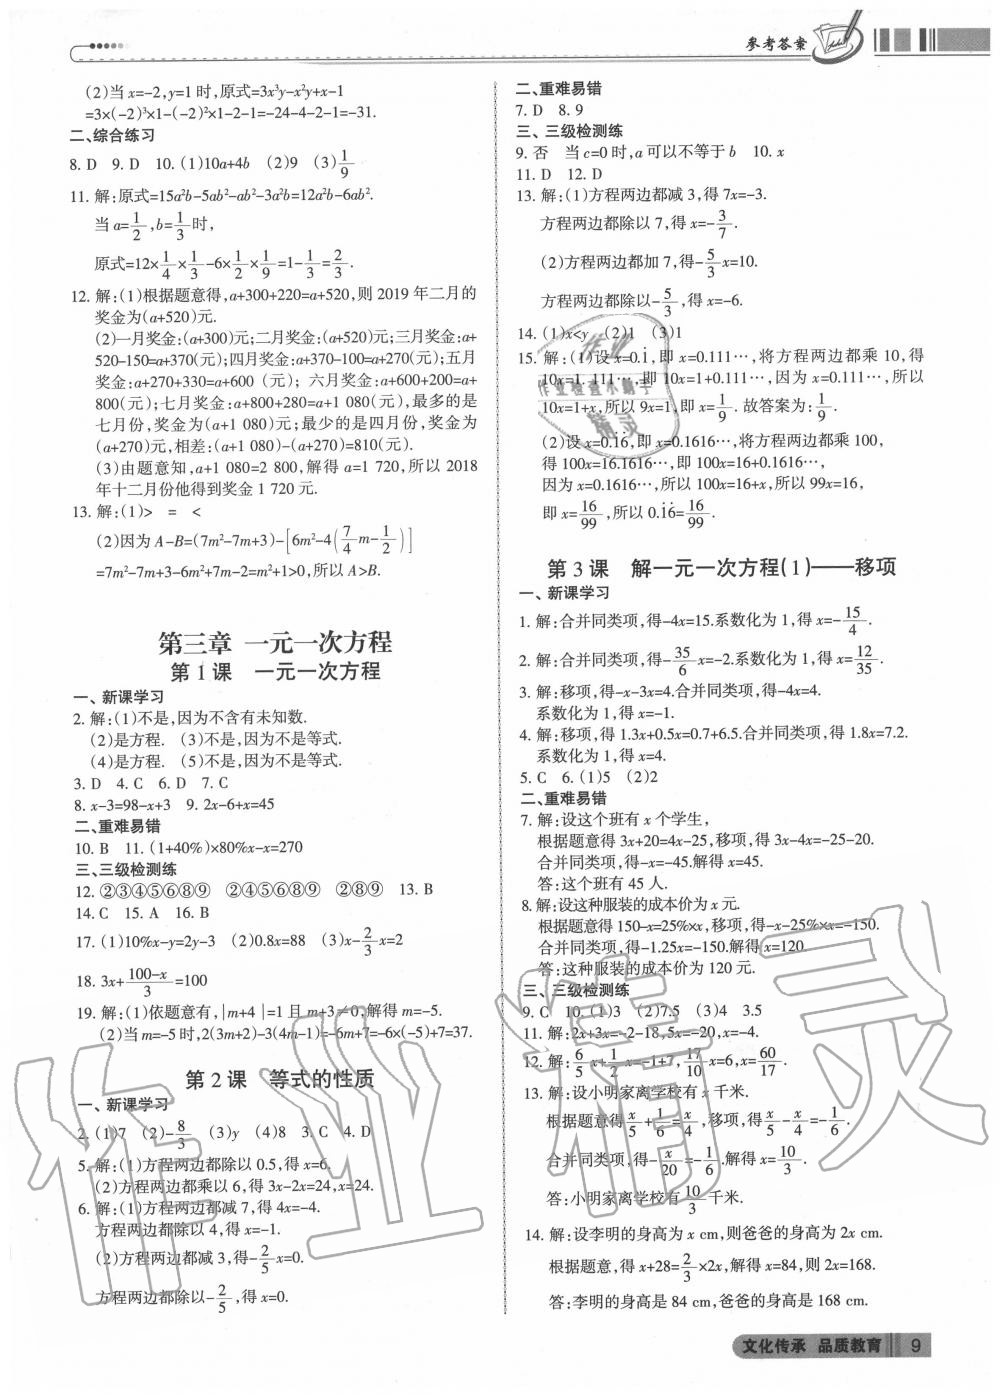 参考答案
(2)当 x=-2,y=1 时,原式=3x³y-x²y+x-1
=3×(-2)³×1-(-2)²×1-2-1=-24-4-2-1=-31.
二、综合练习
8. D 9. D 10. (1)10a+4b (2)9 (3)1/9
11. 解:原式=15a²b-5ab²-ab²-3a²b=12a²b-6ab².
当 a=1/2,b=1/3时,
原式=12×1/4×1/3-6×1/2×1/9=1-1/3=2/3.
12. 解:(1)根据题意得,a+300+220=a+520,则 2019 年二月的
奖金为(a+520)元.
(2)一月奖金:(a+300)元;二月奖金:(a+520)元;三月奖金:a+
520-150=a+370(元);四月奖金:a+370-100=a+270(元);五月
奖金:a+270+330=a+600 (元); 六月奖金:a+600+200=a+
800(元);七月奖金:a+800+280=a+1 080(元),最多的是
七月份,奖金为(a+1 080)元;最少的是四月份,奖金为
(a+270)元,相差:(a+1 080)-(a+270)=810(元).
(3)由题意知,a+1 080=2 800,解得 a=1 720,所以 2018
年十二月份他得到奖金 1 720元.
13. 解:(1)> = <
(2)因为 A-B=(7m²-7m+3)-[6m²-4(7/4m-1/2)]
=7m²-7m+3-6m²+7m-2=m²+1>0,所以 A>B.
第三章 一元一次方程
第 1 课 一元一次方程
一、新课学习
2. 解:(1)不是,因为不含有未知数.
(2)是方程. (3)不是,因为不是等式.
(4)是方程. (5)不是,因为不是等式.
3. D 4. C 6. D 7. C
8. x-3=98-x+3 9. 2x-6+x=45
二、重难易错
10. B 11. (1+40%)×80%x-x=270
三、三级检测练
12. ②③④⑤⑥⑧⑨ ②④⑤⑥⑧⑨ ②⑧⑨ 13. B
14. C 15. A 16. B
17. (1)10%x-y=2y-3 (2)0.8x=88 (3)x-2/3x=2
18. 3x+(100-x)/3=100
19. 解:(1)依题意有,|m+4|=1 且 m+3≠0,解得 m=-5.
(2)当 m=-5 时,2(3m+2)-3(4m-1)=-6m+7=-6×(-5)+7=37.
第 2 课 等式的性质
一、新课学习
2. (1)7 (2)-8/3 (3)y (4)8 3. C 4. D
5. 解:(1)方程两边都除以 0.5,得 x=6.
(2)方程两边都乘以 6,得 3x-2x=24,x=24.
6. 解:(1)方程两边都减 7,得 4x=-4.
方程两边都除以 4,得 x=-1.
(2)方程两边都减 3,得-2/5x=0.
方程两边都除以-2/5,得 x=0.
二、重难易错
7. D 8. 9
三、三级检测练
9. 否 当 c=0 时,a 可以不等于 b 10. x
11. D 12. D
13. 解:(1)方程两边都减 3,得 7x=-3.
方程两边都除以 7,得 x=-3/7.
(2)方程两边都加 7,得-5/3x=10.
方程两边都除以-5/3,得 x=-6.
14. (1)x<y (2)1 (3)1
15. 解:(1)设 x=0.1̇,即 x=0.111…,将方程两边都乘 10,得
10x=1. 111…,即 10x=1+0.111…,因为 x=0.111…,所以
10x=1+x,所以 9x=1,即 x=1/9. 故答案为:1/9.
(2)设 x=0.1̇6̇,即 x=0.1616…,将方程两边都乘 100,
得 100x=16.1616…,即 100x=16+0.1616…,
因为 x=0.1616…,所以 100x=16+x,所以 99x=16,
即 x=16/99,所以 0.1̇6̇=16/99.
第 3 课 解一元一次方程(1)——移项
一、新课学习
1. 解:合并同类项,得-4x=15.系数化为 1,得 x=-15/4.
2. 解:合并同类项,得-35/6x=-2.系数化为 1,得 x=12/35.
3. 解:移项,得-x-3x=4.合并同类项,得-4x=4.
系数化为 1,得 x=-1.
4. 解:移项,得 1.3x+0.5x=0.7+6.5.合并同类项,得 1.8x=7.2.
系数化为 1,得 x=4.
5. C 6. (1)5 (2)2
二、重难易错
7. 解:设这个班有 x 个学生,
根据题意得 3x+20=4x-25,移项,得 3x-4x=-25-20.
合并同类项,得-x=-45.解得 x=45.
答:这个班有 45 人.
8. 解:设这种服装的成本价为 x 元.
根据题意得 150-x=25%x,移项,得-x-25%x=-150.
合并同类项,得-1.25x=-150.解得 x=120.
答:这种服装的成本价为 120 元.
三、三级检测练
9. C 10. (1)3 (2)7.5 (3)4 3.5
11. 解:2x+3x=-2-18,5x=-20,x=-4.
12. 解:6/5x+1/2x=-1+7,17/10x=6,x=60/17.
13. 解:设小明家离学校有 x 千米.
根据题意得x/5+1/6=x/4,移项,得x/5-x/4=-1/6.
合并同类项,得-x/20=-1/6.解得 x=10/3.
答:小明家离学校有10/3千米.
14. 解:设李明的身高为 x cm,则爸爸的身高为 2x cm.
根据题意,得 x+28=2/3×2x,解得 x=84,所以 2x=168.
答:李明的身高是 84 cm,爸爸的身高是 168 cm.
作业精灵
作业
作业检查小助手
精灵
文化传承 品质教育 9